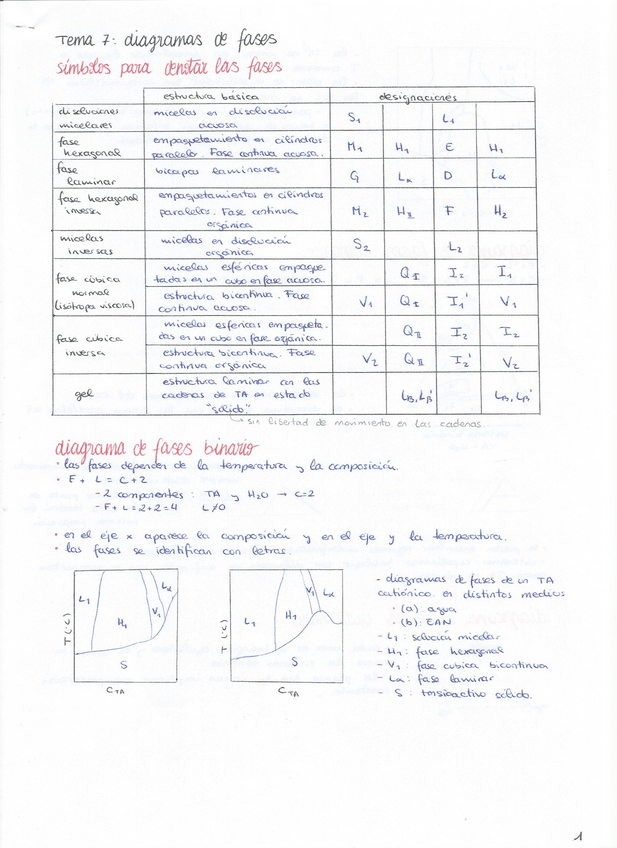 Tema 7: diagramas de fases
símbolos para denotar las fases
estructura básica designaciones
disoluciones micelares micelas en disolución acuosa S1 L1
fase hexagonal empaquetamiento en cilindros paralelo. Fase continua acuosa. M1 H1 E H1
fase laminar bicapas laminares G Lα D Lα
fase hexagonal inversa empaquetamientos en cilindros paralelos. Fase continua orgánica M2 HII F H2
micelas inversas micelas en disolución orgánica S2 L2
fase cúbica normal (isótropa viscosa) micelas esféricas empaquetadas en un cubo en fase acuosa. QI I2 I1
estructura bicontinua. Fase continua acuosa. V1 QI I1' V1
fase cubica inversa micelas esfericas empaquetadas en un cubo en fase orgánica. QII I2 I2
estructura bicontinua. Fase continua orgánica V2 QII I2' V2
gel estructura laminar con las cadenas de TA en estado "sólido." Lβ, Lβ' Lβ, Lβ'
sin libertad de movimiento en las cadenas.
diagrama de fases binario
• las fases dependen de la temperatura y la composición.
• F + L = C + 2
- 2 componentes: TA y H2O → C=2
- F + L = 2 + 2 = 4 L≠0
• en el eje x aparece la composición y en el eje y la temperatura.
• las fases se identifican con letras.
T (°C) L1 H1 V1 Lα S
CTA
T (°C) L1 H1 V1 Lα S
CTA
- diagramas de fases de un TA
catiónico en distintos medios
• (a): agua
• (b): EAN
- L1: solución micelar
- H1: fase hexagonal
- V1: fase cubica bicontinua
- Lα: fase laminar
- S: tensioactivo sólido.
1